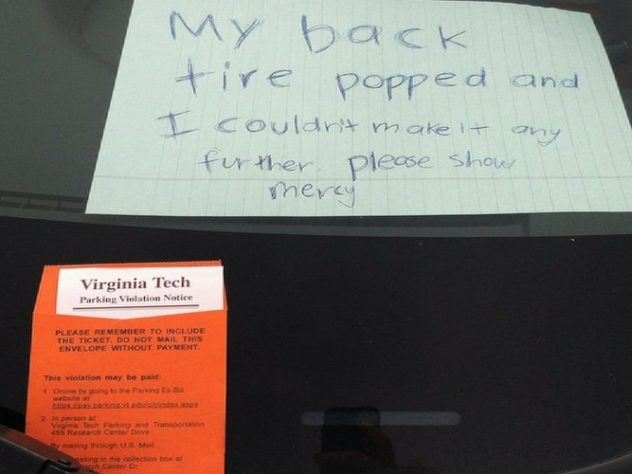 My back
tire popped and
I couldn't make it any
further. please show
mercy
Virginia Tech
Parking Violation Notice
PLEASE REMEMBER TO INCLUDE
THE TICKET. DO NOT MAIL THIS
ENVELOPE WITHOUT PAYMENT.
This violation may be paid:
1. Online by going to the Parking Ez-Biz
website at
https://pay.parking.vt.edu/cit/index.aspx
2. In person at:
Virginia Tech Parking and Transportation
455 Research Center Drive
By mailing through U.S. Mail
in the collection box at
Center Dr.